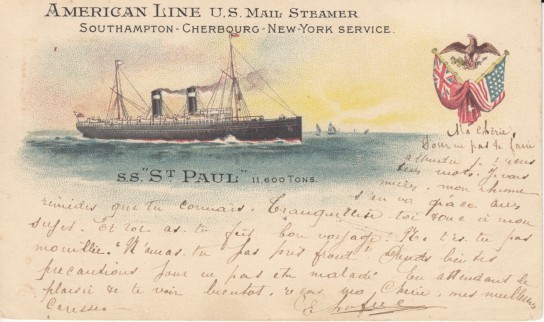 AMERICAN LINE U.S. MAIL STEAMER
SOUTHAMPTON - CHERBOURG - NEW-YORK SERVICE.
S.S. "ST PAUL" 11,600 TONS.
Ma Chérie,
Pour ne pas te faire
attendre, je
mots. Je vais
mieux, mon rhume
s'en va grâce aux
remèdes que tu connais. Tranquillise toi donc à mon
sujet. Et toi as-tu fait bon voyage? Ne t'es tu pas
mouillée? N'auras-tu pas pris froid? Prends bien tes
précautions pour ne pas être malade. En attendant le
plaisir de te voir bientôt, reçois, ma Chérie, mes meilleures
Caresses.